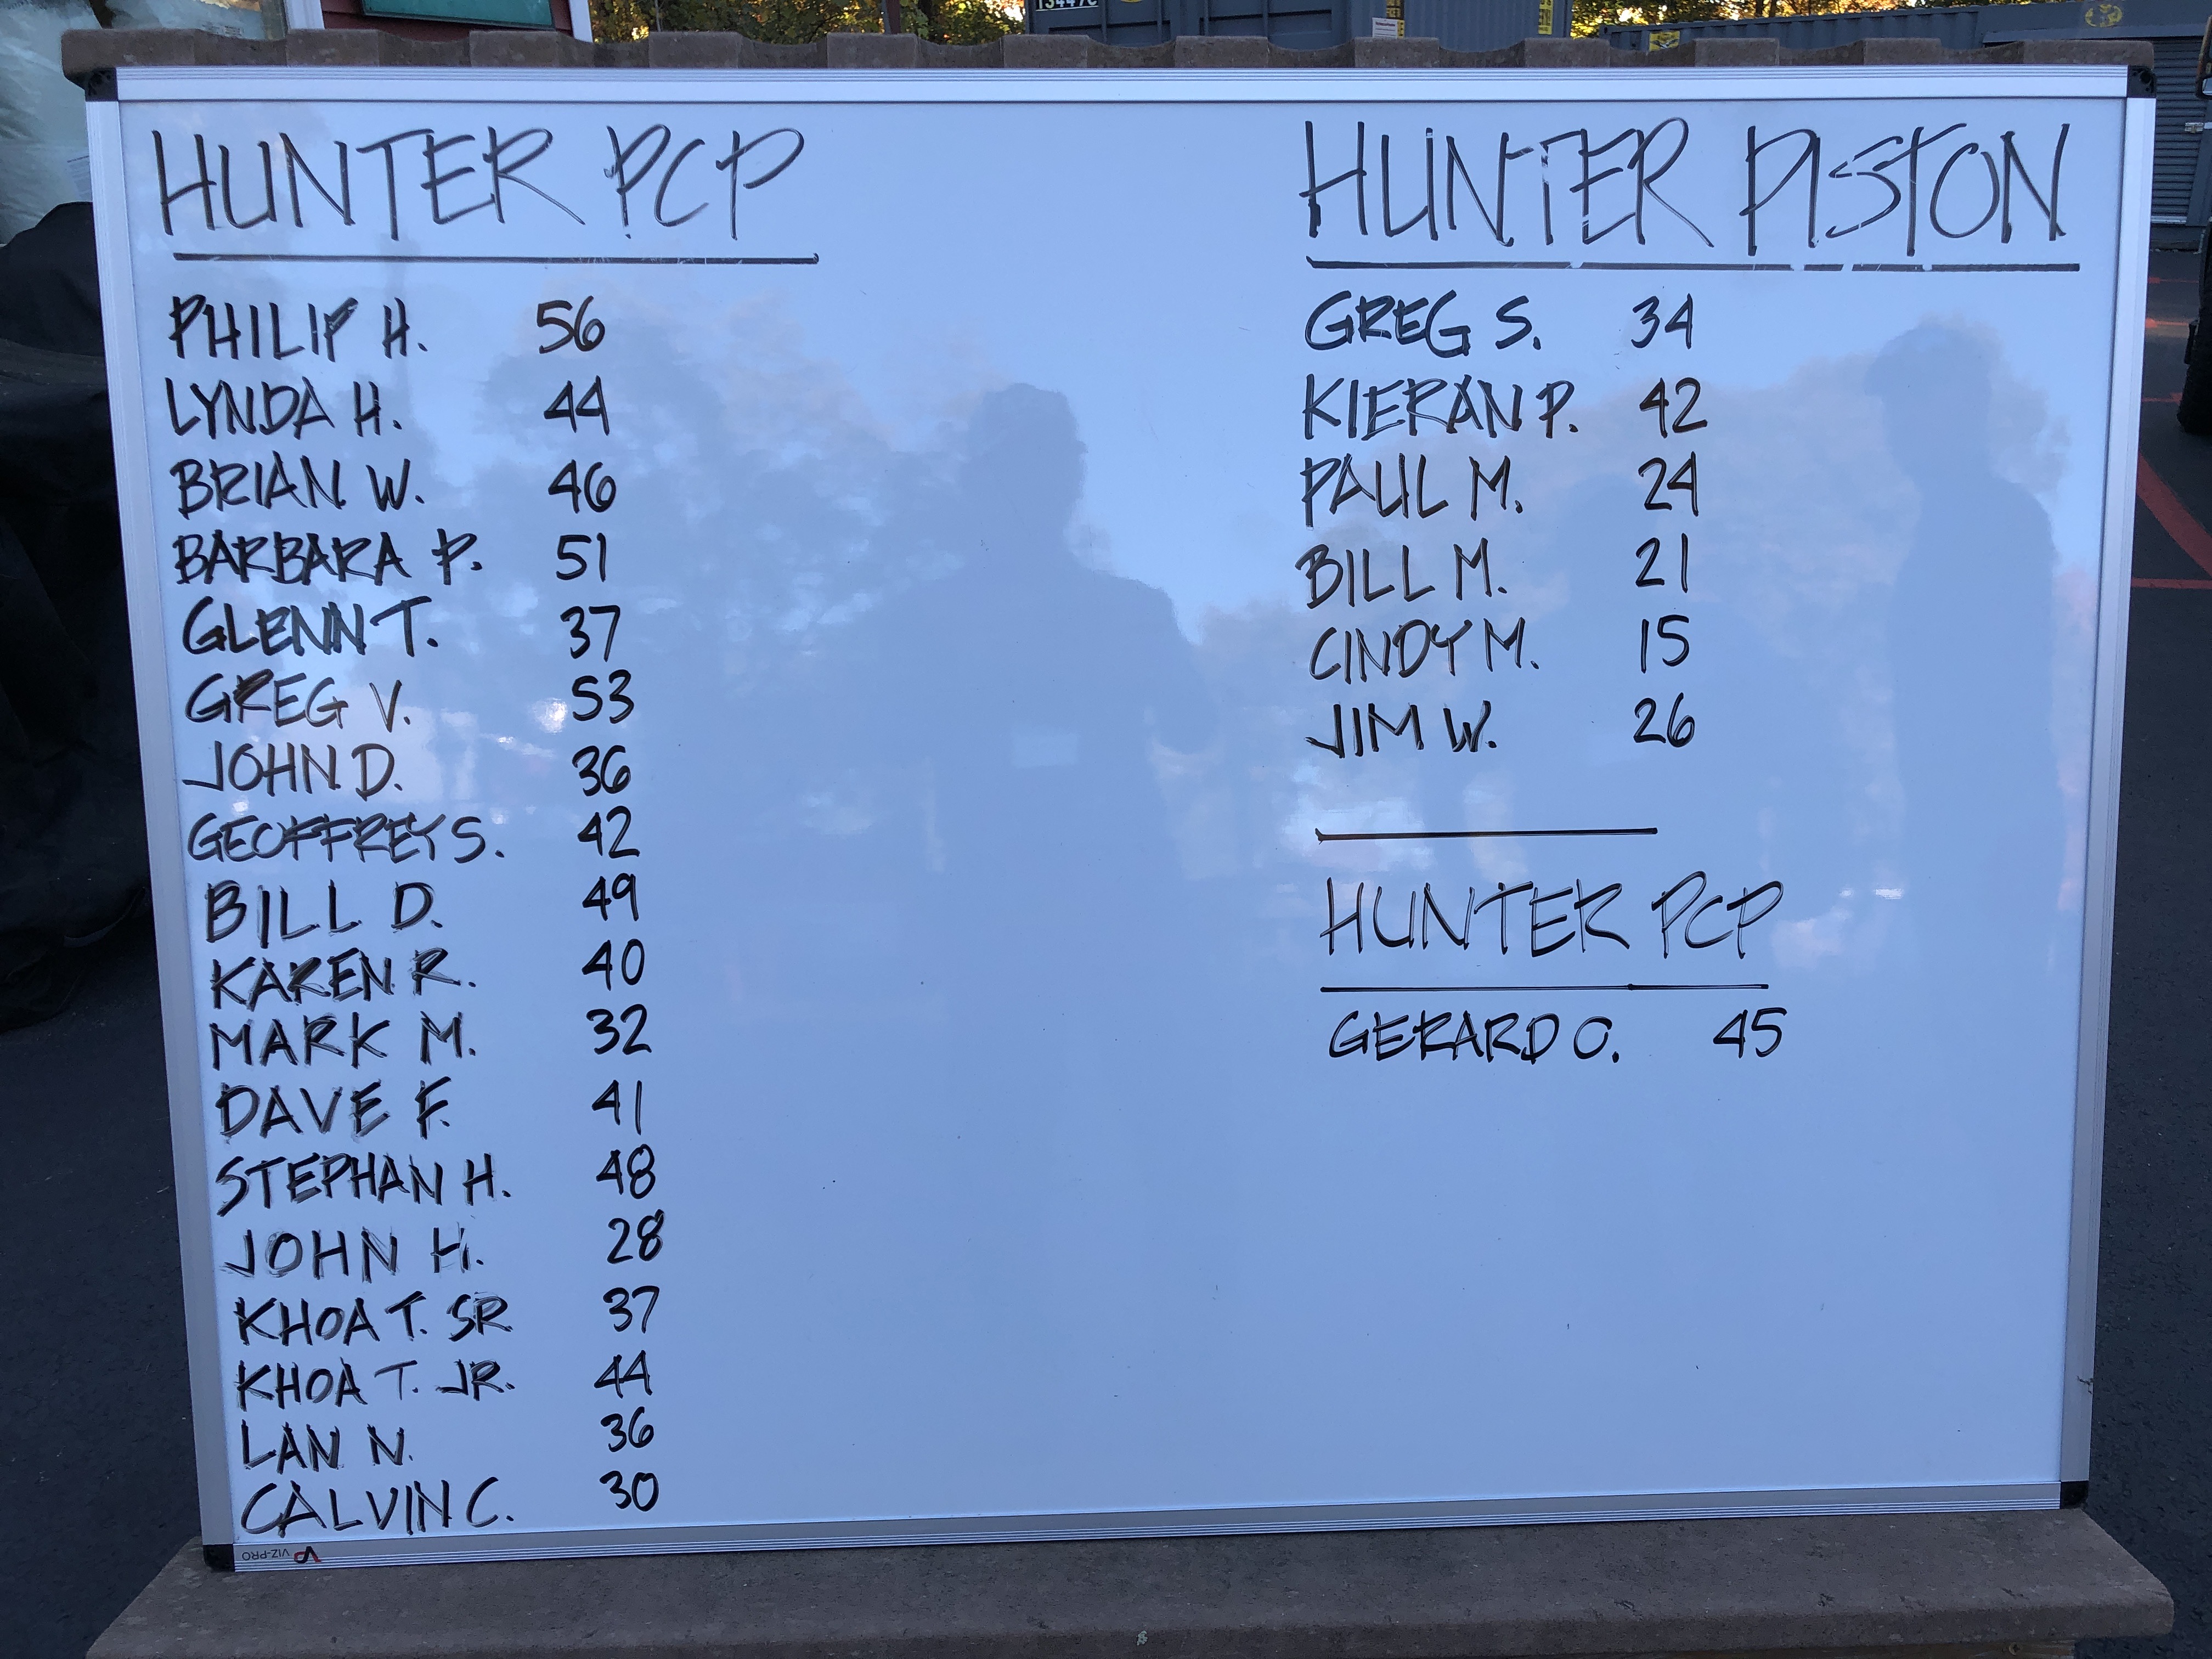 HUNTER PCP
PHILIP H. 56
LYNDA H. 44
BRIAN W. 46
BARBARA P. 51
GLENN T. 37
GREG V. 53
JOHN D. 36
GEOFFREY S. 42
BILL D. 49
KAREN R. 40
MARK M. 32
DAVE F. 41
STEPHAN H. 48
JOHN H. 28
KHOA T. SR 37
KHOA T. JR. 44
LAN N. 36
CALVIN C. 30
HUNTER PISTON
GREG S. 34
KIERAN P. 42
PAUL M. 24
BILL M. 21
CINDY M. 15
JIM W. 26
HUNTER PCP
GERARD O. 45
VIZ-PRO